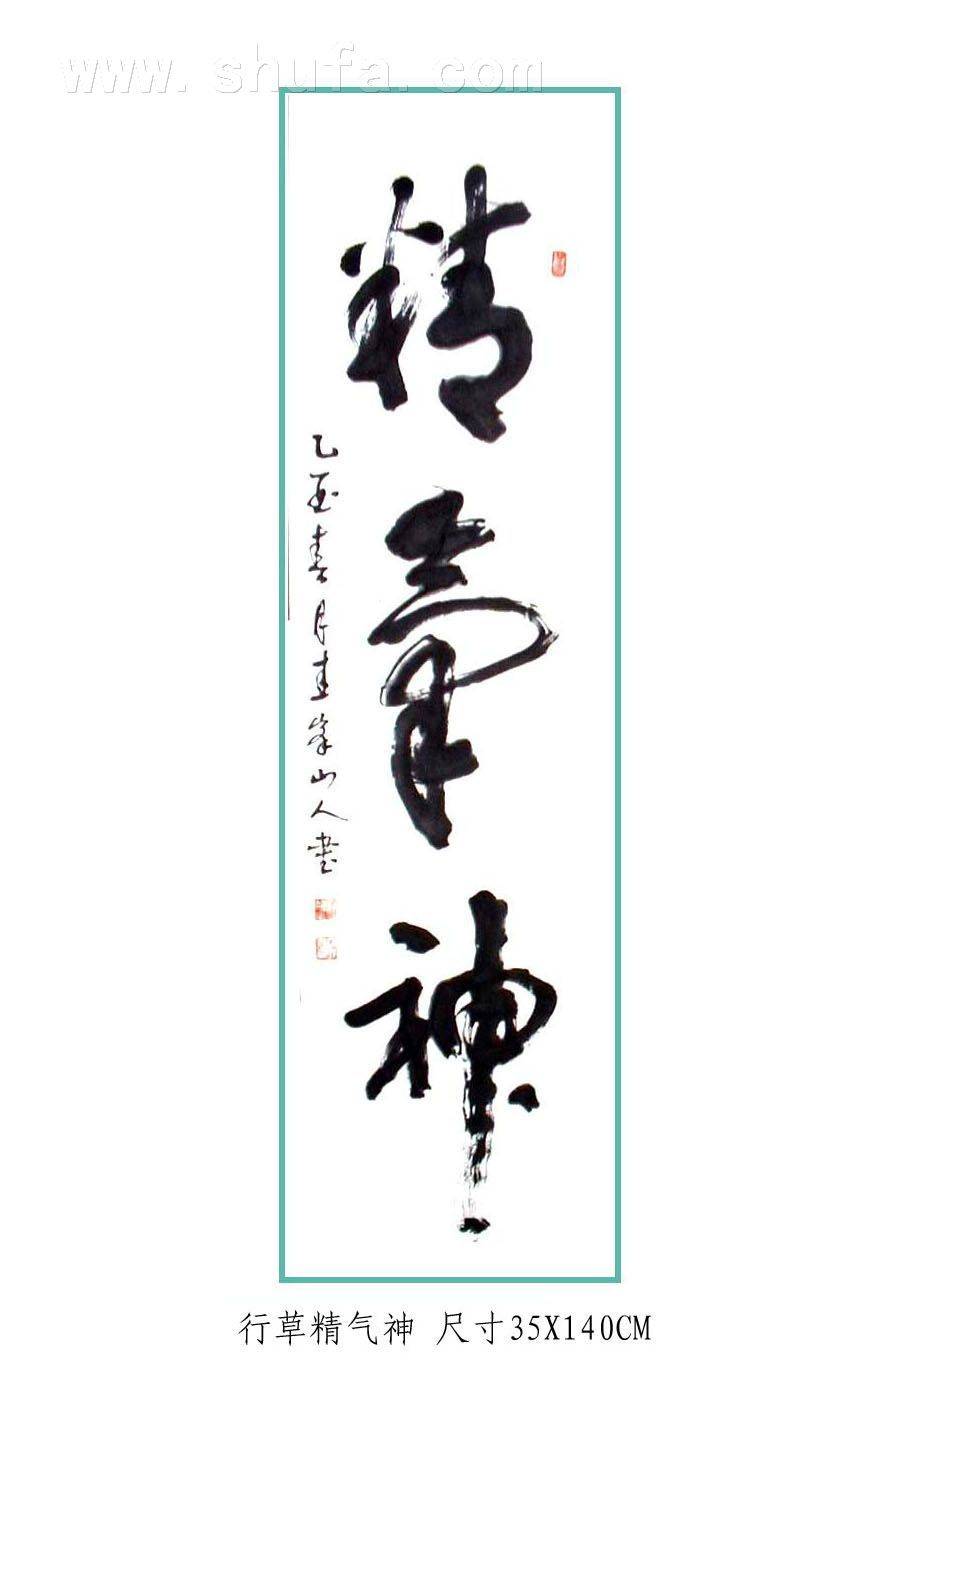 www.shufa.com
精氣神
乙酉春月圭峯山人書
行草精气神 尺寸35X140CM